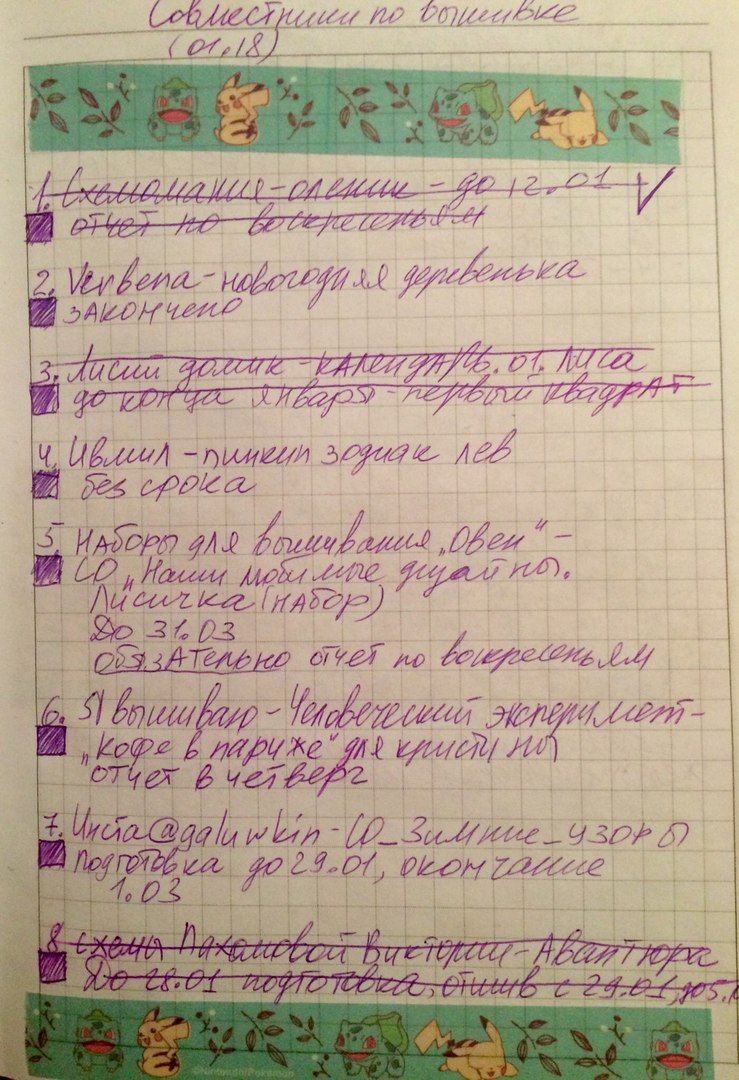 Совместники по вышивке
(01.18)
1. Схемомания-оленик - до 12.01
отчет по воскресеньям
2. Verbena - новогодняя деревенька
закончено
3. Лисий домик - календарь. 01. Лиса
до конца января - первый квадрат
4. Ивмил - пинкип зодиак лев
без срока
5. Наборы для вышивания „Овен" -
СО „Наши любимые дизайны.
Лисичка (набор)
До 31.03
Обязательно отчет по воскресеньям
6. Я вышиваю - Человеческий эксперимент -
„Кофе в париже" для кристины
отчет в четверг
7. Инста @galuwkin - СО_Зимние_узоры
подготовка до 29.01, окончание
1.03
8 схемы Пахомовой Виктории - Авантюра
До 28.01 подготовка, отшив с 29.01, до 5.
©Nintendo/Pokémon